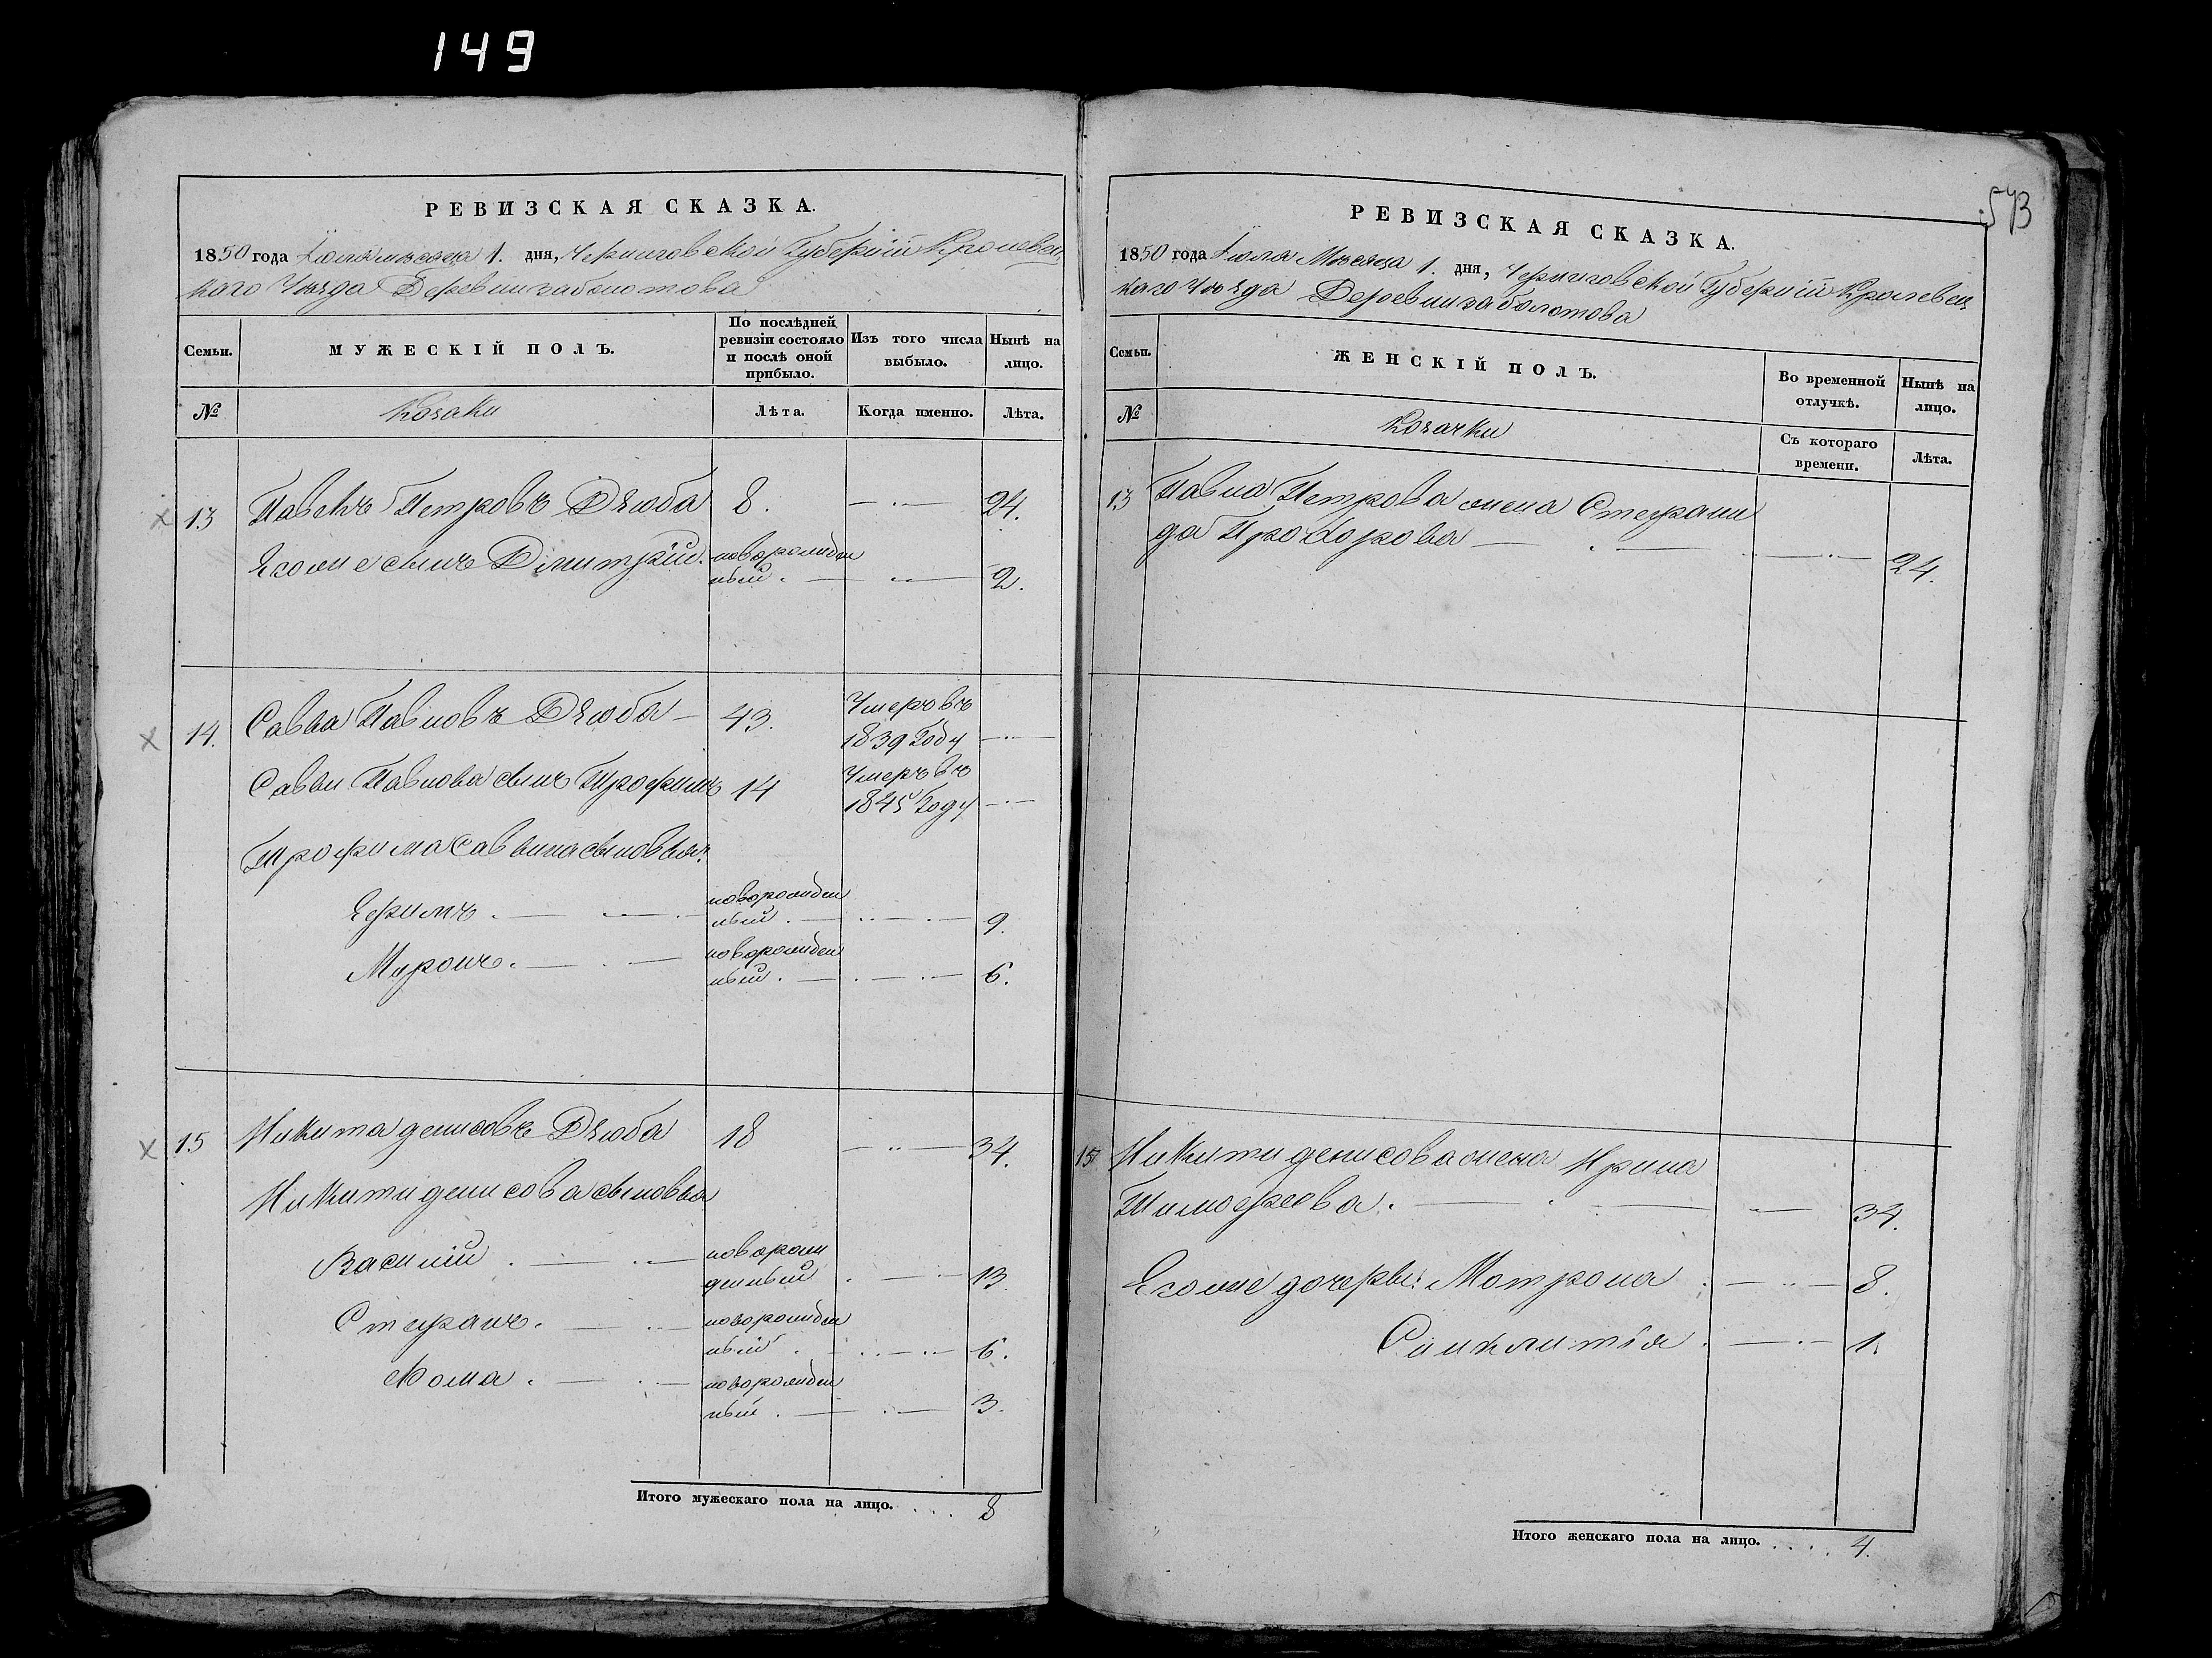 149
РЕВИЗСКАЯ СКАЗКА.
1850 года Іюля месяца 1. дня, Черниговской Губерніи Кролевец
каго Уѣзда Деревни Заболотова
Семьи.
МУЖЕСКІЙ ПОЛЪ.
По послѣдней ревизіи состояло и послѣ оной прибыло.
Изъ того числа выбыло.
Нынѣ на лицо.
№
Козаки
Лѣта.
Когда именно.
Лѣта.
13 Павелъ Петровъ Дзюба 8. 24.
Его же сынъ Дмитрій. новорожден
ный. 2.
14. Савва Павловъ Дзюба 43. Умеръ въ
1839 Году
Саввы Павлова сынъ Трофимъ 14 Умеръ въ
1845 Году
Трофима Саввина сыновья:
Ефимъ. новорожден
ный. 9.
Миронъ. новорожден
ный. 6.
15 Никита денисовъ Дзюба 18 34.
Никиты денисова сыновья
Василій новорож
денный 13.
Стефанъ. новорожден
ный. 6.
Фома. новорожден
ный. 3.
Итого мужескаго пола на лицо. . . . 8
573
РЕВИЗСКАЯ СКАЗКА.
1850 года Іюля Месяца 1. дня, Черниговской Губерніи Кролевец
каго Уѣзда Деревни Заболотова
Семьи.
ЖЕНСКІЙ ПОЛЪ.
Во временной отлучкѣ.
Нынѣ на лицо.
№
Козачки
Съ котораго времени.
Лѣта.
13 Павла Петрова жена Стефани
да Прохорова 24.
15 Никиты денисова жена Ирина
Тимофеева. 34.
Его же дочери: Мотрона 8.
Синклитія 1.
Итого женскаго пола на лицо. . . . . 4.